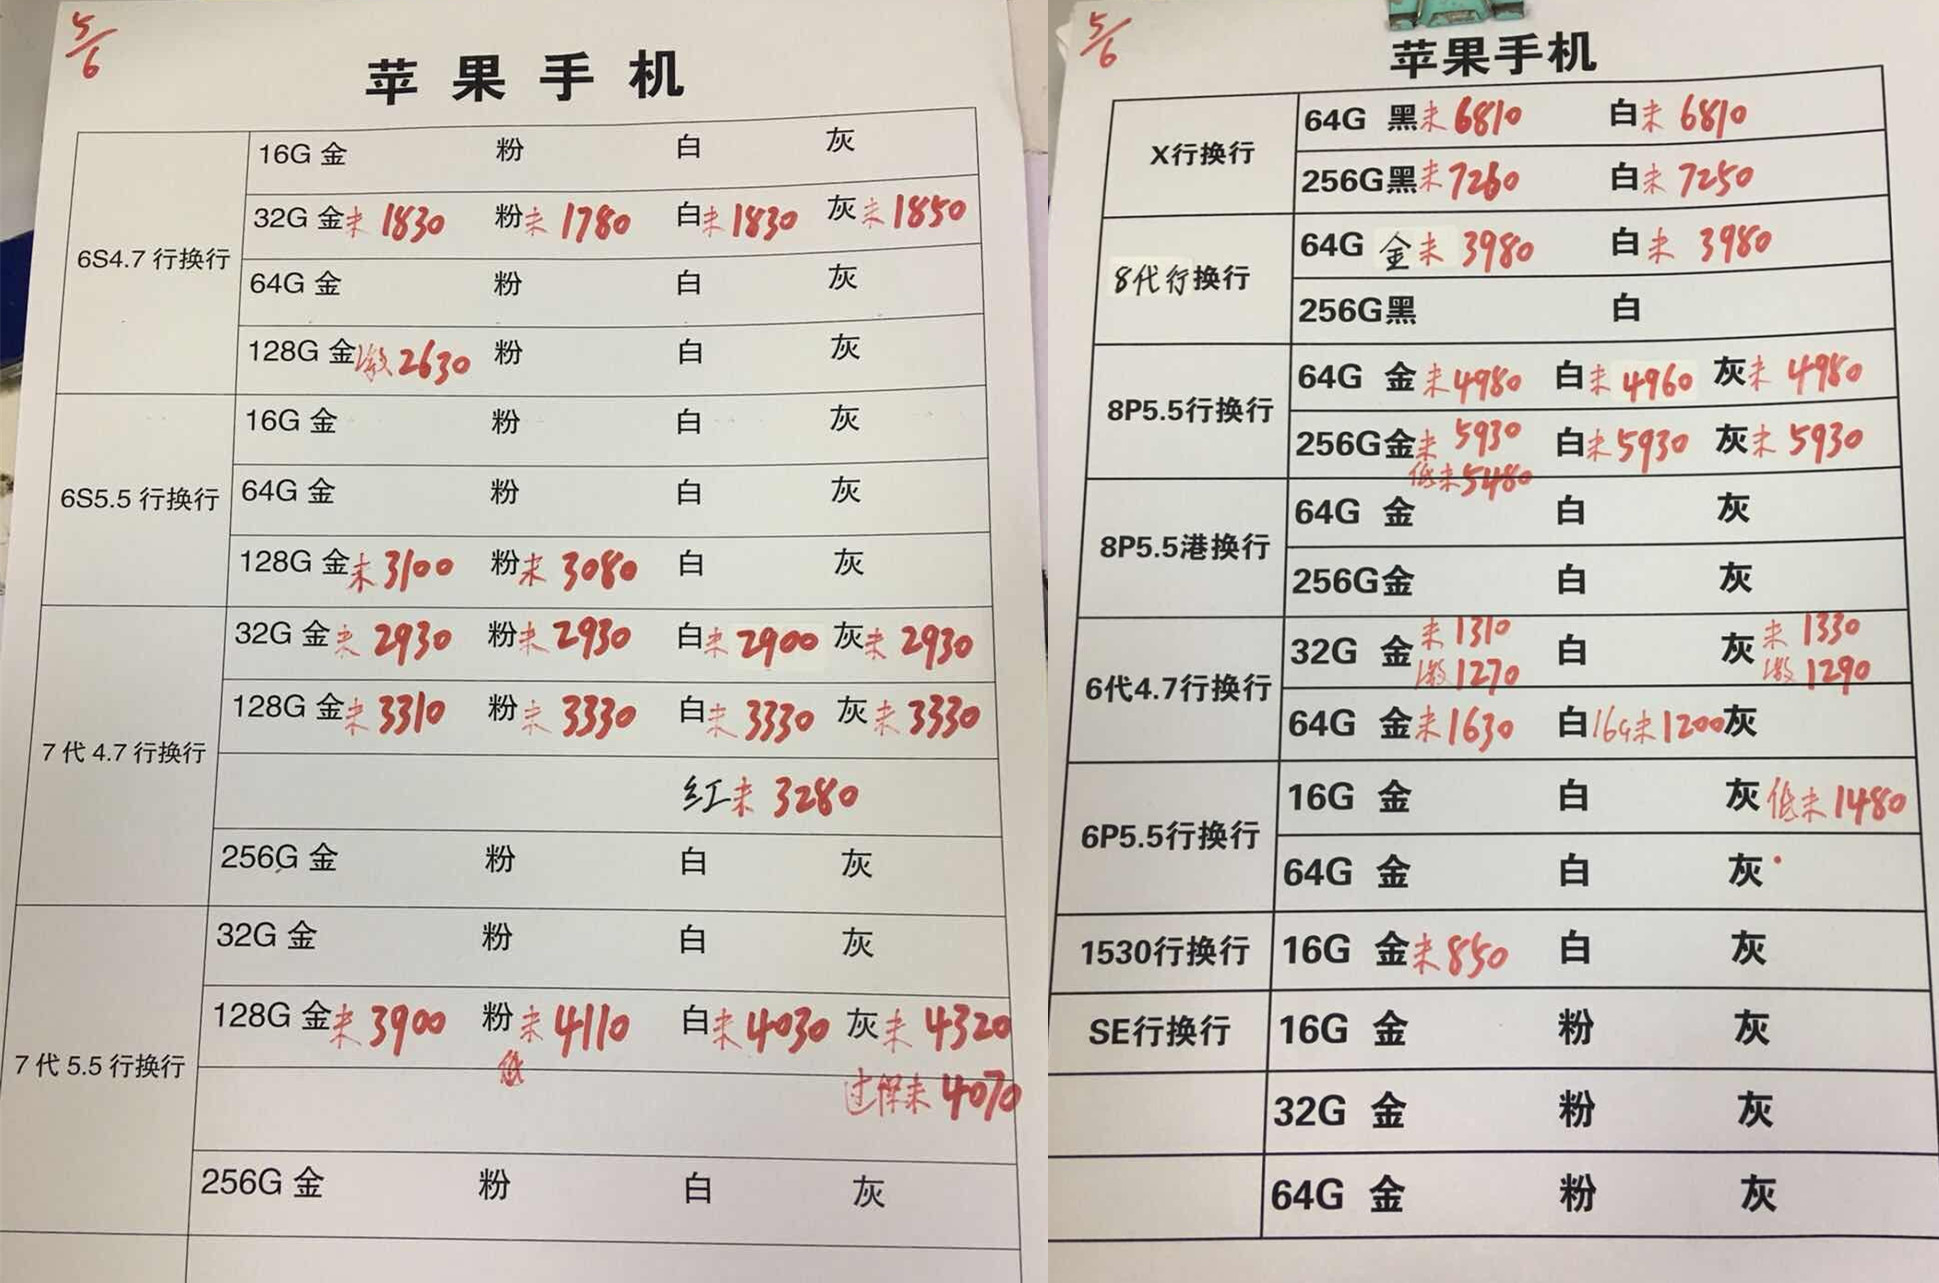 5/6
苹果手机
6S4.7 行换行
16G 金 粉 白 灰
32G 金未1830 粉未1780 白未1830 灰未1850
64G 金 粉 白 灰
128G 金激2630 粉 白 灰
6S5.5 行换行
16G 金 粉 白 灰
64G 金 粉 白 灰
128G 金未3100 粉未3080 白 灰
7 代 4.7 行换行
32G 金未2930 粉未2930 白未2900 灰未2930
128G 金未3310 粉未3330 白未3330 灰未3330
红未3280
256G 金 粉 白 灰
7 代 5.5 行换行
32G 金 粉 白 灰
128G 金未3900 粉未4110 白未4030 灰未4320
低 过保未4070
256G 金 粉 白 灰
5/6
苹果手机
X行换行
64G 黑未6810 白未6810
256G黑未7260 白未7250
8代行换行
64G 金未3980 白未3980
256G黑 白
8P5.5行换行
64G 金未4980 白未4960 灰未4980
256G金未5930 白未5930 灰未5930
低未5480
8P5.5港换行
64G 金 白 灰
256G金 白 灰
6代4.7行换行
32G 金未1310 白 灰未1330
激1270 激1290
64G 金未1630 白16G未1200灰
6P5.5行换行
16G 金 白 灰低未1480
64G 金 白 灰
1530行换行
16G 金未850 白 灰
SE行换行
16G 金 粉 灰
32G 金 粉 灰
64G 金 粉 灰